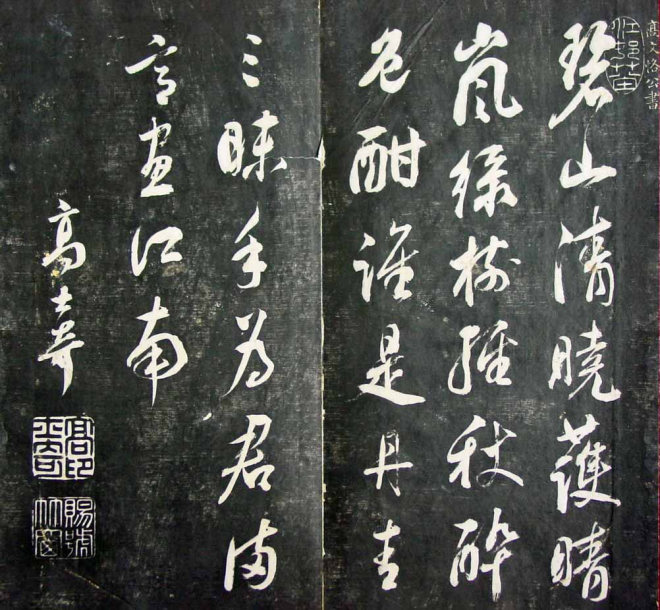 高文恪公書
碧山清曉護晴
嵐綠樹經秋醉
色酣誰是丹青
三昧手為君滿
意畫江南
高士奇
高印士奇
賜號竹窗